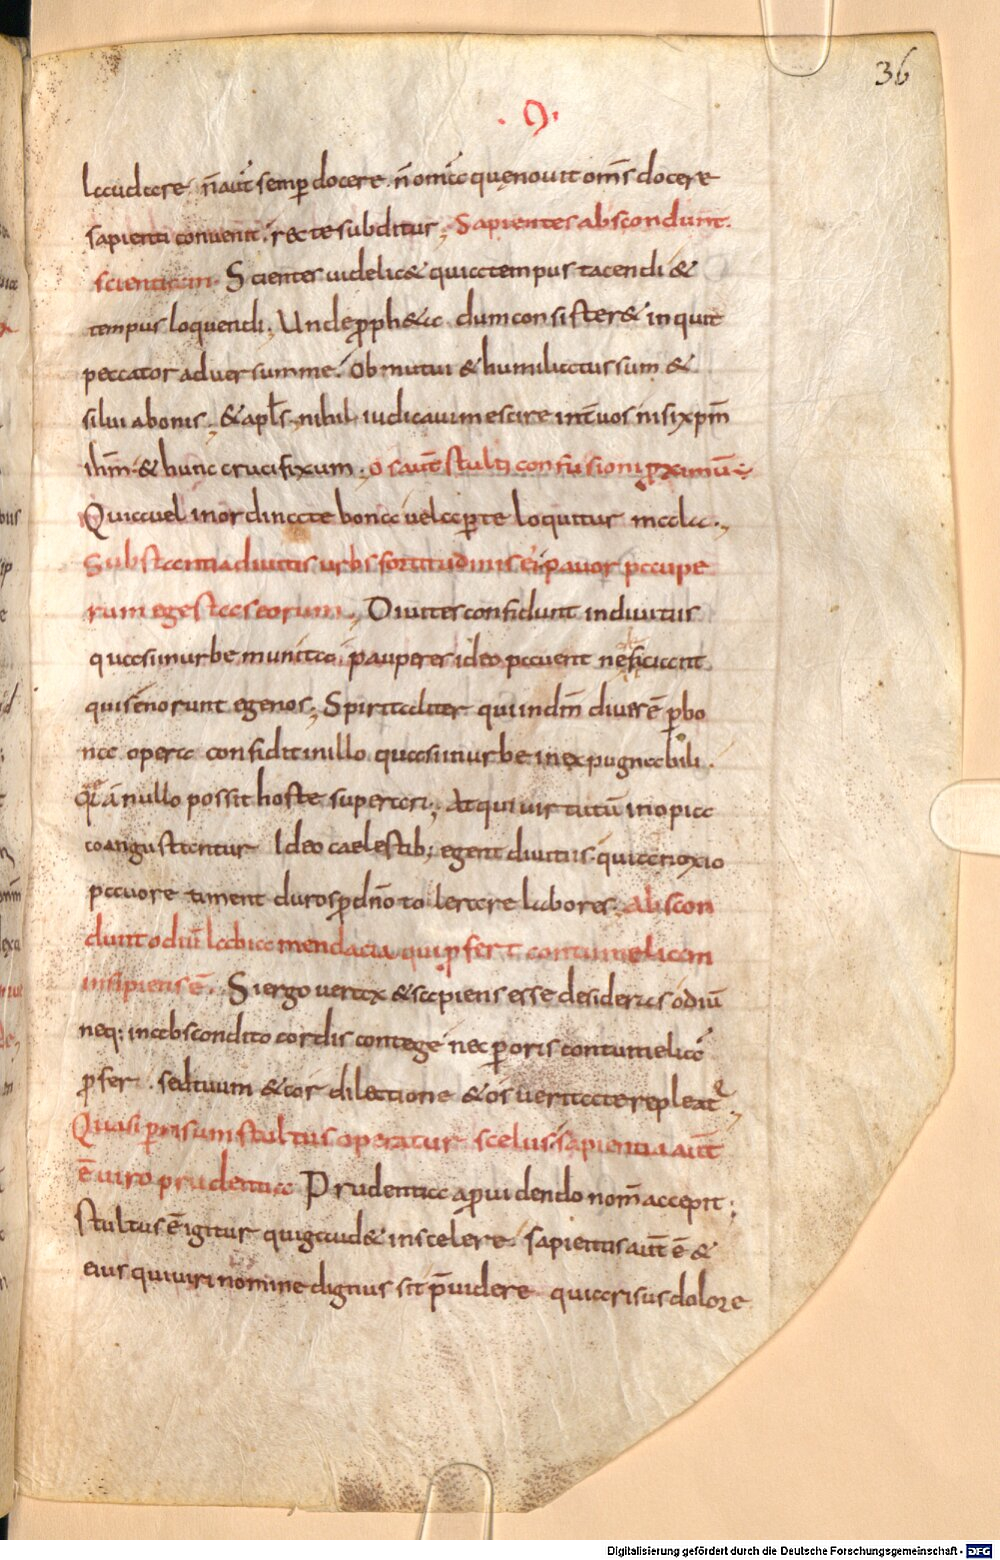 36
.9.
laudare. n̄ aut̄ semp̄ docere. n̄ om̄ia quę novit om̄s docere
sapienti convenit. recte subditur; Sapientes abscondunt.
scientiam. Scientes videlic& quia tempus tacendi &
tempus loquendi; Unde p̄ph&a dum consister& inquit
peccator adversum me. Obmutui & humiliatus sum &
silui a bonis; & apl̄s. nihil iudicavi me scire int̄ vos nisi xp̄m
ih̄m. & hunc crucifixum; os aut̄ stulti confusioni p̄ximū ÷
Quia vel inordinate bona vel ap̄te loquitur mala;
Substantia divitis urbs fortitudinis ei' pavor paupe
rum egestas eorum; Divites confidunt in divitiis
quasi in urbe munita. pauperes ideo pavent ne ficiant
qui se norunt egenos; Spiritaliter qui in dm̄ dives ē p̄ bo
na opera confidit in illo quasi in urbe inexpugnabili.
Quia a nullo possit hoste superari; At qui virtutū inopia
coangustiantur Ideo caelestib; egent divitiis. quia noxio
pavore timent duros p̄ dn̄o tolerare labores; Abscon
dunt odiū labia mendacia qui p̄fert contumeliam
insipiens ē. Si ergo verax & sapiens esse desideras odiū
neq; in abscondito cordis contege nec p̄ oris contumeliā
p̄fer. sed tuum & cor dilectione & os veritate repleat᷑;
Quasi p̄ risum stultus operatur scelus. sapientia aut̄
ē viro prudentia Prudentia a p̄videndo nom̄ accepit;
Stultus ē igitur qui gaud& in scelere. sapientis aut̄ ē &
eius qui viri nomine dignus sit p̄videre quia risus dolore
Digitalisierung gefördert durch die Deutsche Forschungsgemeinschaft - DFG